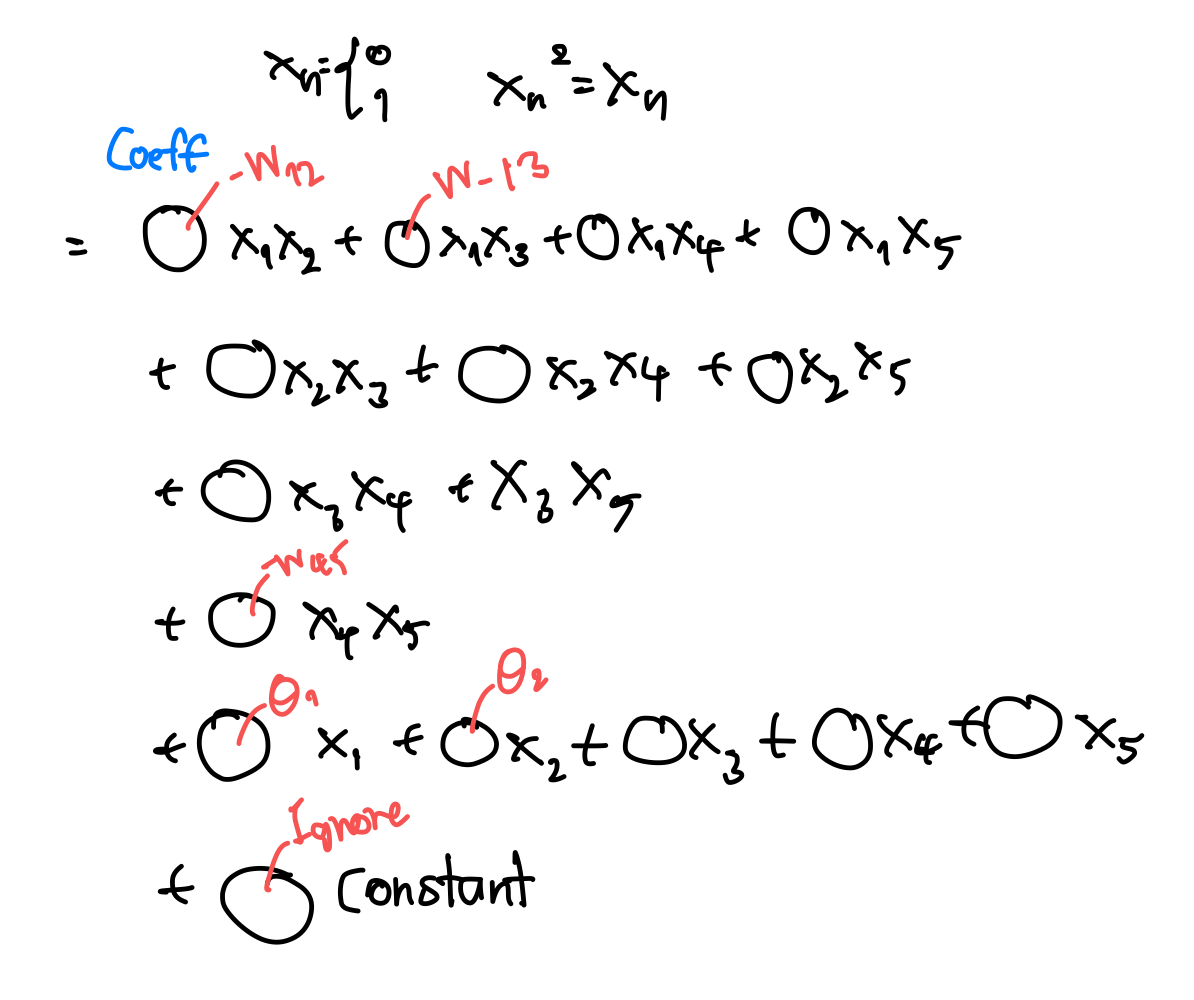 xₙ = { 0 1    xₙ² = xₙ
Coeff -W₁₂ W-13
= ○ x₁x₂ + ○ x₁x₃ + ○ x₁x₄ + ○ x₁x₅
+ ○ x₂x₃ + ○ x₂x₄ + ○ x₂x₅
+ ○ x₃x₄ + x₃x₅
-W₄₅
+ ○ x₄x₅
θ₁ θ₂
+ ○ x₁ + ○ x₂ + ○ x₃ + ○ x₄ + ○ x₅
Ignore
+ ○ Constant